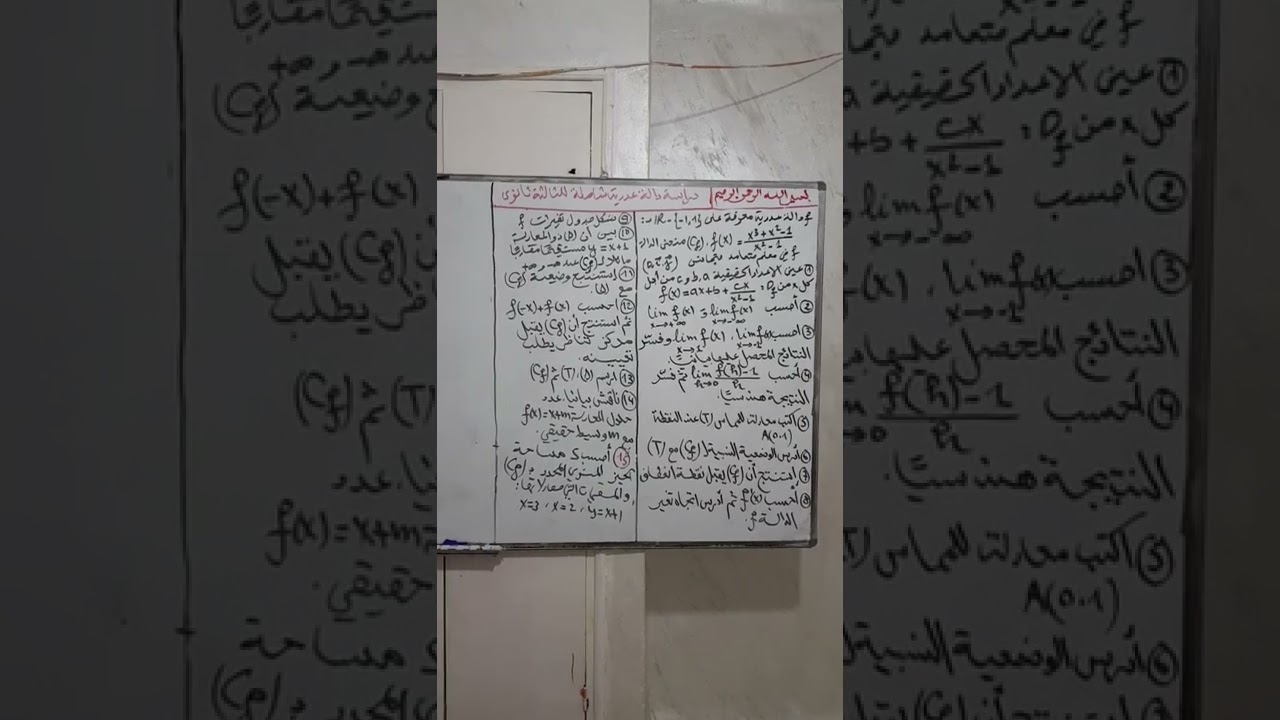 بسم الله الرحمن الرحيم
دراسة دالة عددية شاملة للثالثة ثانوي
f دالة عددية معرفة على R-{-1,1} بـ:
f(x) = (x³+x²-1)/(x²-1) . (Cf) منحنى الدالة
f في معلم متعامد متجانس (o,i,j)
① عين الأعداد الحقيقية a، b و c من أجل
كل x من Df : f(x) = ax+b+ cx/(x²-1)
② أحسب lim f(x) x→-∞ و lim f(x) x→+∞
③ أحسب lim f(x) x→-1 ، lim f(x) وفسّر
النتائج المحصل عليها بيانيّا.
④ أحسب lim h→0 (f(h)-1)/h ثمّ فسّر
النتيجة هندسيّا.
⑤ اكتب معادلة للمماس (T) عند النقطة
A(0.1)
⑥ أدرس الوضعية النسبية لـ (Cf) مع (T)
⑦ استنتج أن (Cf) يقبل نقطة انعطاف
⑧ أحسب f'(x) ثم أدرس اتجاه تغير
الدالة f.
⑨ شكل جدول تغيرات f
⑩ بين أن (Δ) ذو المعادلة
y = x+1 مستقيما مقاربا
مائلا لـ (Cf) عند -∞ و +∞
⑪ استنتج وضعية (Cf)
مع (Δ).
⑫ احسب f(-x)+f(x)
ثم استنتج أن (Cf) يقبل
مركز تناظر يطلب
تعيينه.
⑬ ارسم (Δ)، (T) ثم (Cf)
⑭ ناقش بيانيا، عدد
حلول المعادلة f(x)=x+m
مع m وسيط حقيقي.
⑮ أحسب A مساحة
الحيز المستوي المحدد بـ (Cf)
والمستقيمات التي معادلاتها:
x=3 ، x=2 ، y=x+1